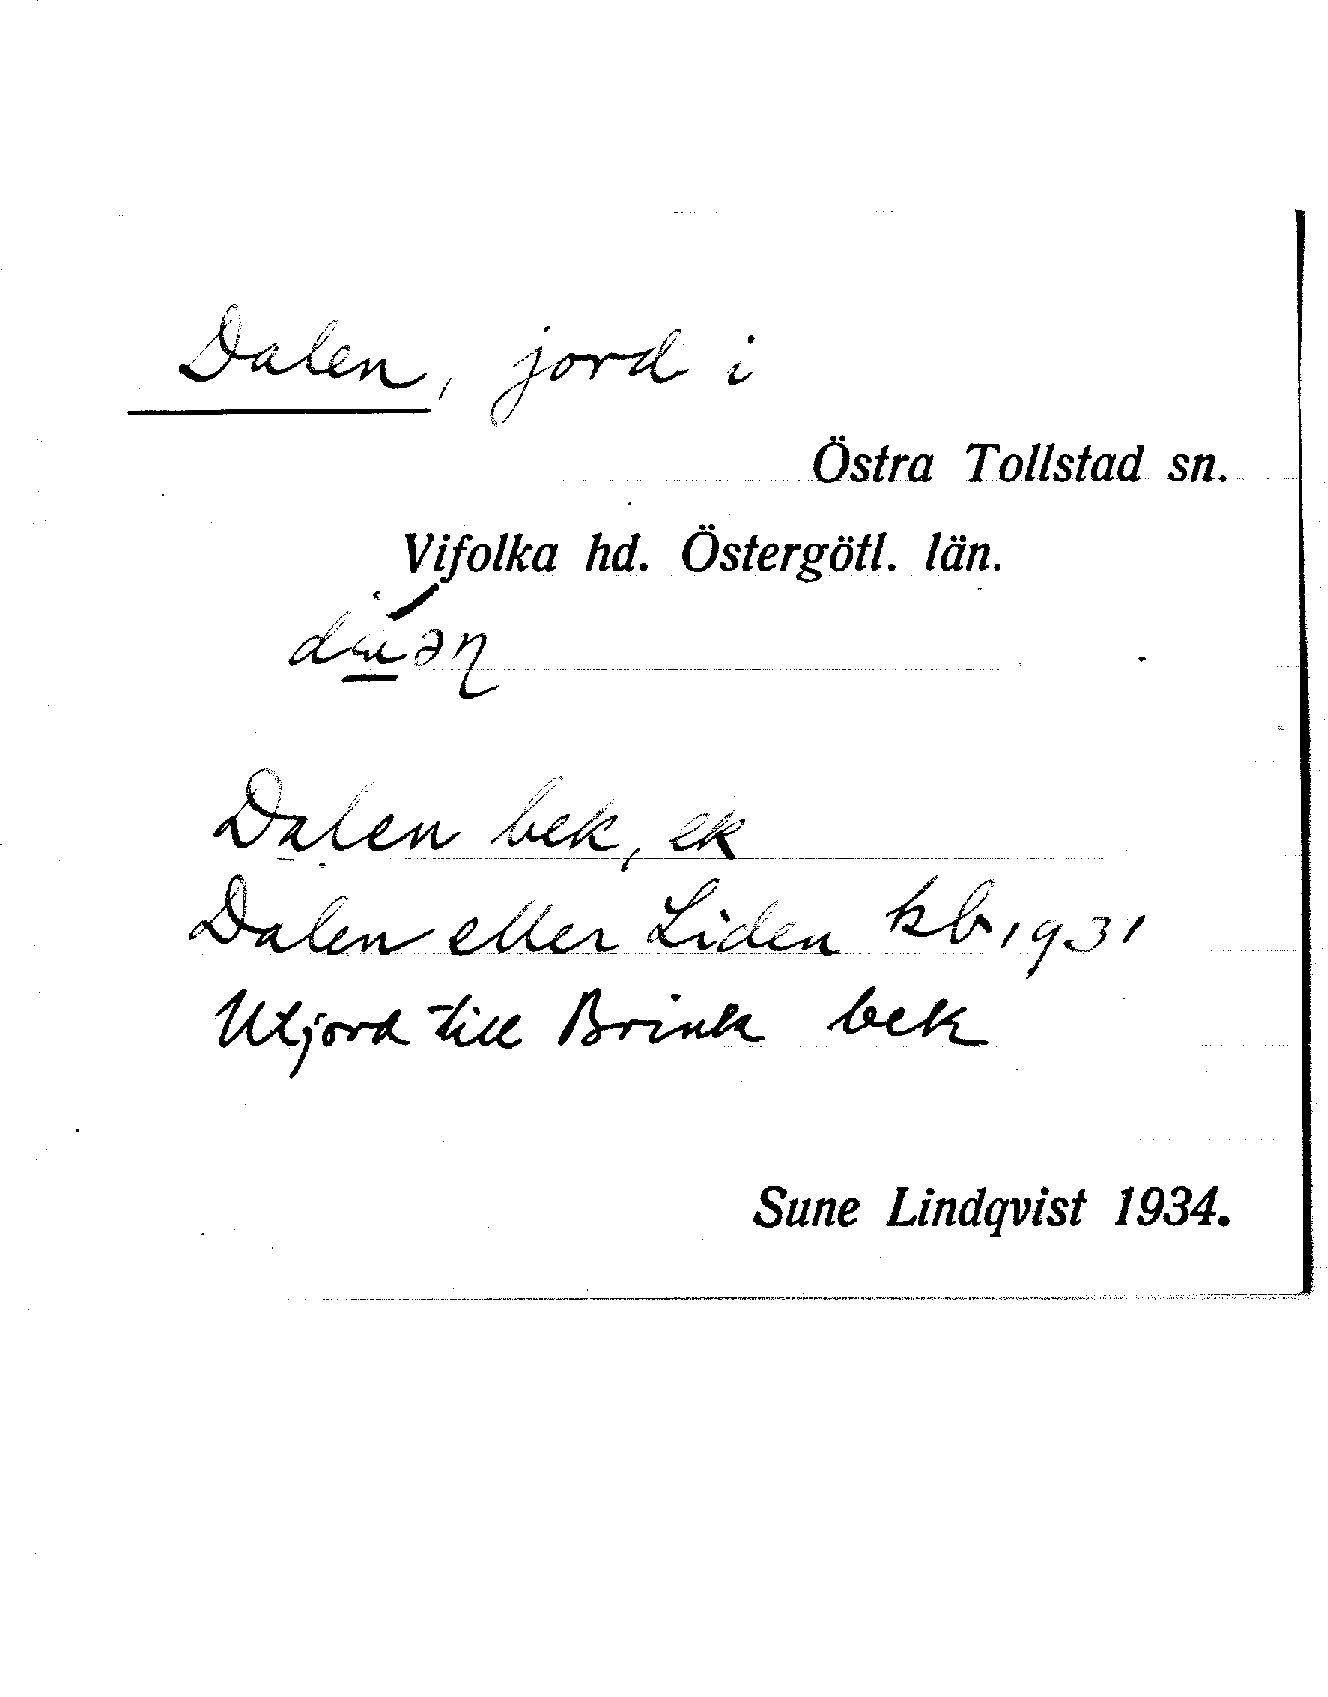 Dalen, jord i
Östra Tollstad sn.
Vifolka hd. Östergötl. län.
Dalen bek, ek
Dalen eller Liden kb 1931
Utjord till Brink bek
Sune Lindqvist 1934.